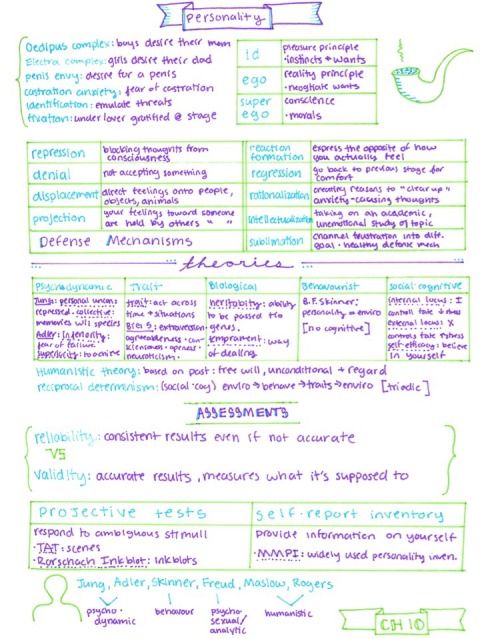 Personality
Oedipus complex: boys desire their mom
Electra complex: girls desire their dad
penis envy: desire for a penis
castration anxiety: fear of castration
identification: emulate threats
fixation: under lover gratified @ stage
id
pleasure principle
· instincts + wants
ego
reality principle
· neogitate wants
super
ego
conscience
· morals
repression
blocking thoughts from
consciousness
reaction
formation
express the opposite of how
you actually feel
denial
not accepting something
regression
go back to previous stage for
comfort
displacement
direct feelings onto people,
objects, animals
rationalization
creating reasons to "clear up"
anxiety-causing thoughts
projection
your feelings toward someone
are held by others " "
intellectualization
taking on an academic,
unemotional study of topic
Defense Mechanisms
sublimation
channel frustration into diff.
goal · healthy defense mech
theories
Psychodynamic
Jung: personal uncon:
repressed · collective:
memories w/i species
Adler: inferiority:
fear of failure
superiority: to achieve
Trait
trait: act across
time + situations
Big 5: extraversion ·
agreeableness · con-
scientiousness · openess ·
neuroticism
Biological
heritability: ability
to be passed t/o
genus.
temprament: way
of dealing
Behavourist
B.F. Skinner:
personality → enviro
[no cognitive]
social cognitive
internal locus: I
controll fate ↓ stress
external locus: X
controls fate ↑ stress
self-efficacy: believe
in yourself
Humanistic theory: based on post: free will, unconditional + regard
reciprocal determinism: (social cog) enviro → behav → traits → enviro [triadic]
ASSESSMENTS
reliability: consistent results even if not accurate
VS
validity: accurate results, measures what it's supposed to
projective tests
respond to ambiguous stimuli
· TAT: scenes
· Rorschach Inkblot: inkblots
self-report inventory
provide information on yourself
· MMPI: widely used personality inven.
Jung, Adler, Skinner, Freud, Maslow, Rogers
psycho-
dynamic
behaviour
psycho-
sexual/
analytic
humanistic
CH 10